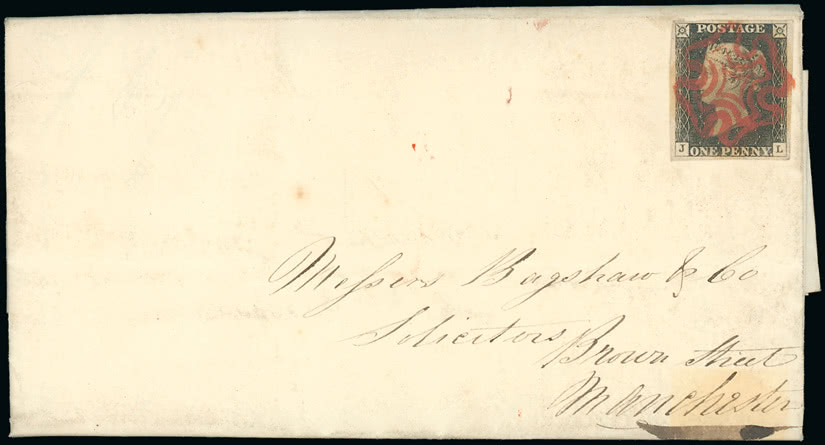 POSTAGE
J ONE PENNY L
Messrs Bagshaw & Co
Solicitors
Brown Street
Manchester